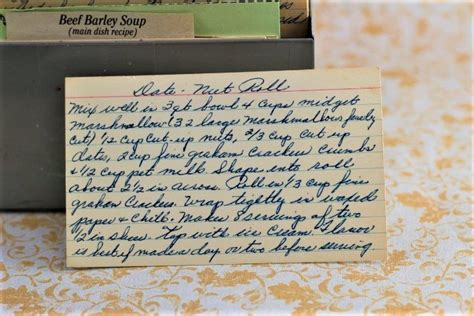 Beef Barley Soup
(main dish recipe)
Date - Nut Roll
Mix well in 3 qt bowl 4 cups midget
Marshmallow (32 large Marshmallows finely
cut) 1/2 cup cut-up nuts, 2/3 cup cut up
dates, 2 cup fine graham cracker crumbs
+ 1/2 cup pet milk. Shape into roll
about 2 1/2 in across. Roll in 1/3 cup fine
graham Crackers. Wrap tightly in waxed
paper & chill. Makes 8 servings of two
1/2 in slices. Top with ice cream. Flavor
is best if made a day or two before serving